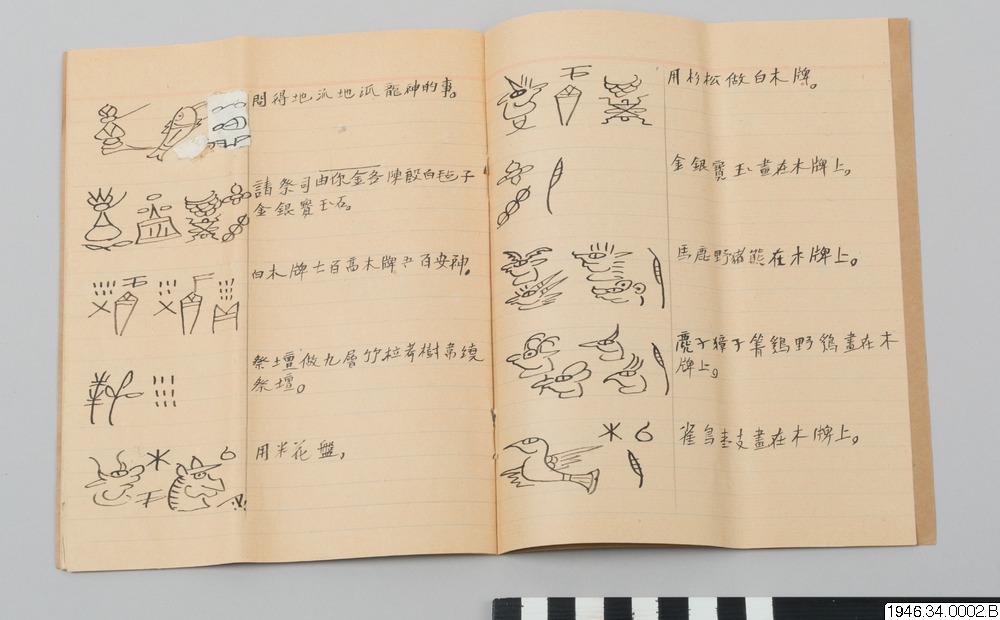 問得地派地派龍神的事。
請祭司由你金多陳設白毡子
金銀寶玉石。
白木牌七百高木牌五百安神。
祭壇做九層竹
祭壇。
用米花盤。
用杉松做白木牌。
金銀寶玉畫在木牌上。
馬鹿野猪熊在木牌上。
麂子獐子箐鷄野鷄畫在木
牌上。
雀鳥 畫在木牌上。
1946.34.0002.B